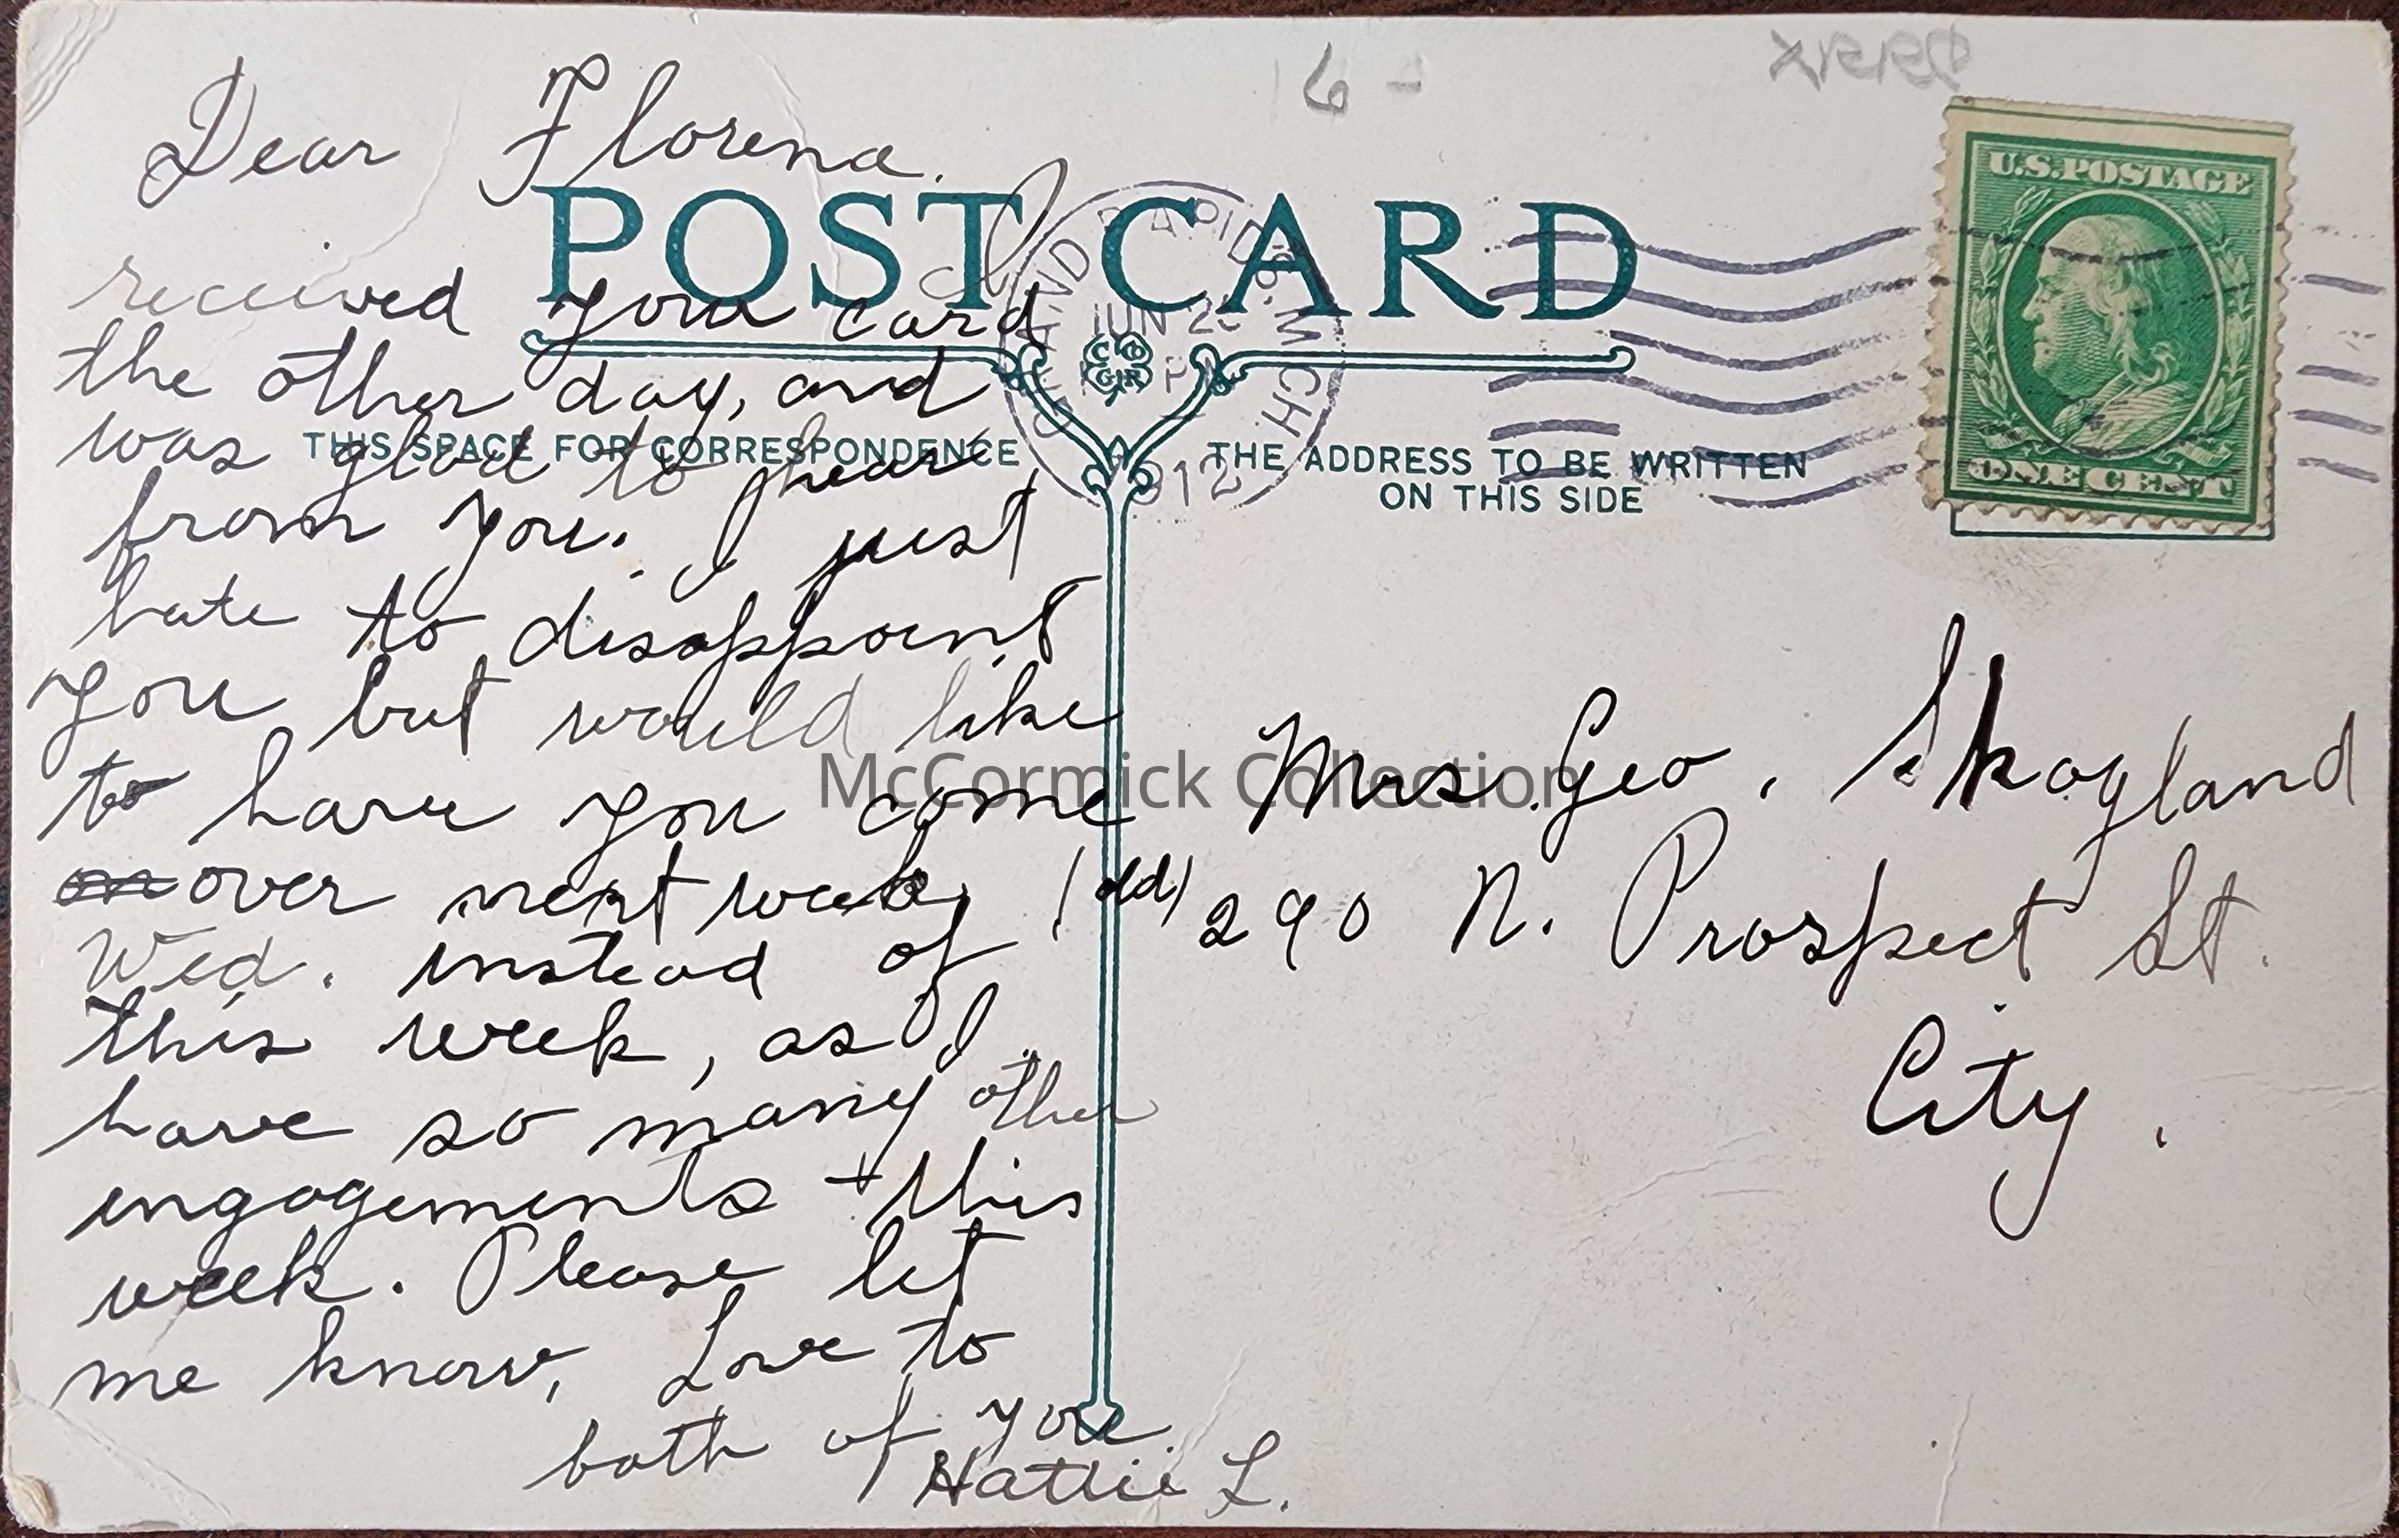 Dear Florena.
I
received your card
the other day, and
was glad to hear
from you. I just
hate to disappoint
you but would like
to have you come
over next week, (dd)
Wed. instead of
this week, as I
have so many other
engagements + this
week. Please let
me know, Love to
both of you.
Hattie L.
16 -
POST CARD
THIS SPACE FOR CORRESPONDENCE
THE ADDRESS TO BE WRITTEN
ON THIS SIDE
GRAND RAPIDS, MICH
JUN 2
PM
1912
U.S. POSTAGE
ONE CENT
Mrs. Geo. Skogland
290 N. Prospect St.
City.
McCormick Collection